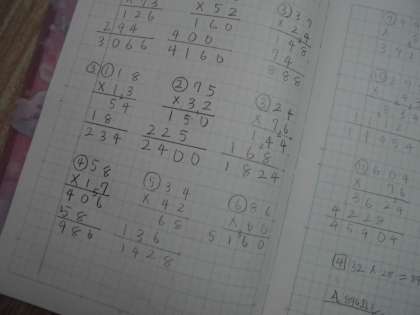 × 5 2
1 2 6
1 6 0
2 9 4
4 0 0
3 0 6 6
4 1 6 0
③ 3 7
× 2 4
1 4 8
7 4
8 8 8
③ ① 1 8
× 1 3
5 4
1 8
2 3 4
② 7 5
× 3 2
1 5 0
2 2 5
2 4 0 0
③ 2 4
× 7 6
1 4 4
1 6 8
1 8 2 4
④ 5 8
× 1 7
4 0 6
5 8
9 8 6
⑤ 3 4
× 4 2
6 8
1 3 6
1 4 2 8
⑥ 8 6
× 6 0
5 1 6 0
6 0 4
× 7 6
3 6 2 4
4 2 2 8
4 5 9 0 4
4 32 × 28 =